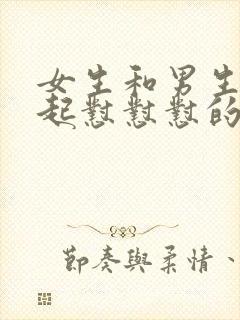 女生和男生
起懟懟懟的
節奏與柔情、